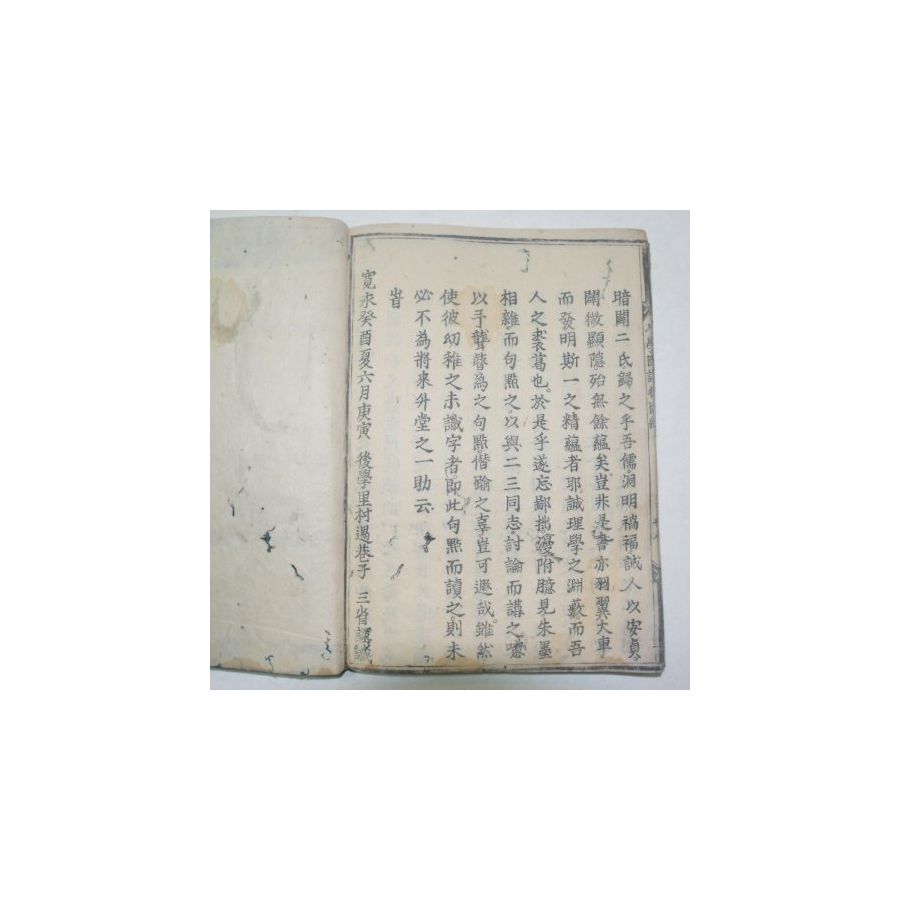 暗闢二氏歸之乎吾儒洞明禍福誠人以安貞
闡微顯隱殆無餘蘊矣豈非是書亦羽翼大車
而發明斯一之精蘊者耶誠理學之淵藪而吾
人之裘葛也於是乎遂忘鄙拙漫附臆見朱墨
相雜而句點之以與二三同志討論而講之噫
以手聾瞽為之句點僭踰之辜豈可遯哉雖然
使彼幼稚之未識字者即此句點而讀之則未
必不為將來升堂之一助云
旹
寬永癸酉夏六月庚寅 後學里村遇巷子 三省謹識